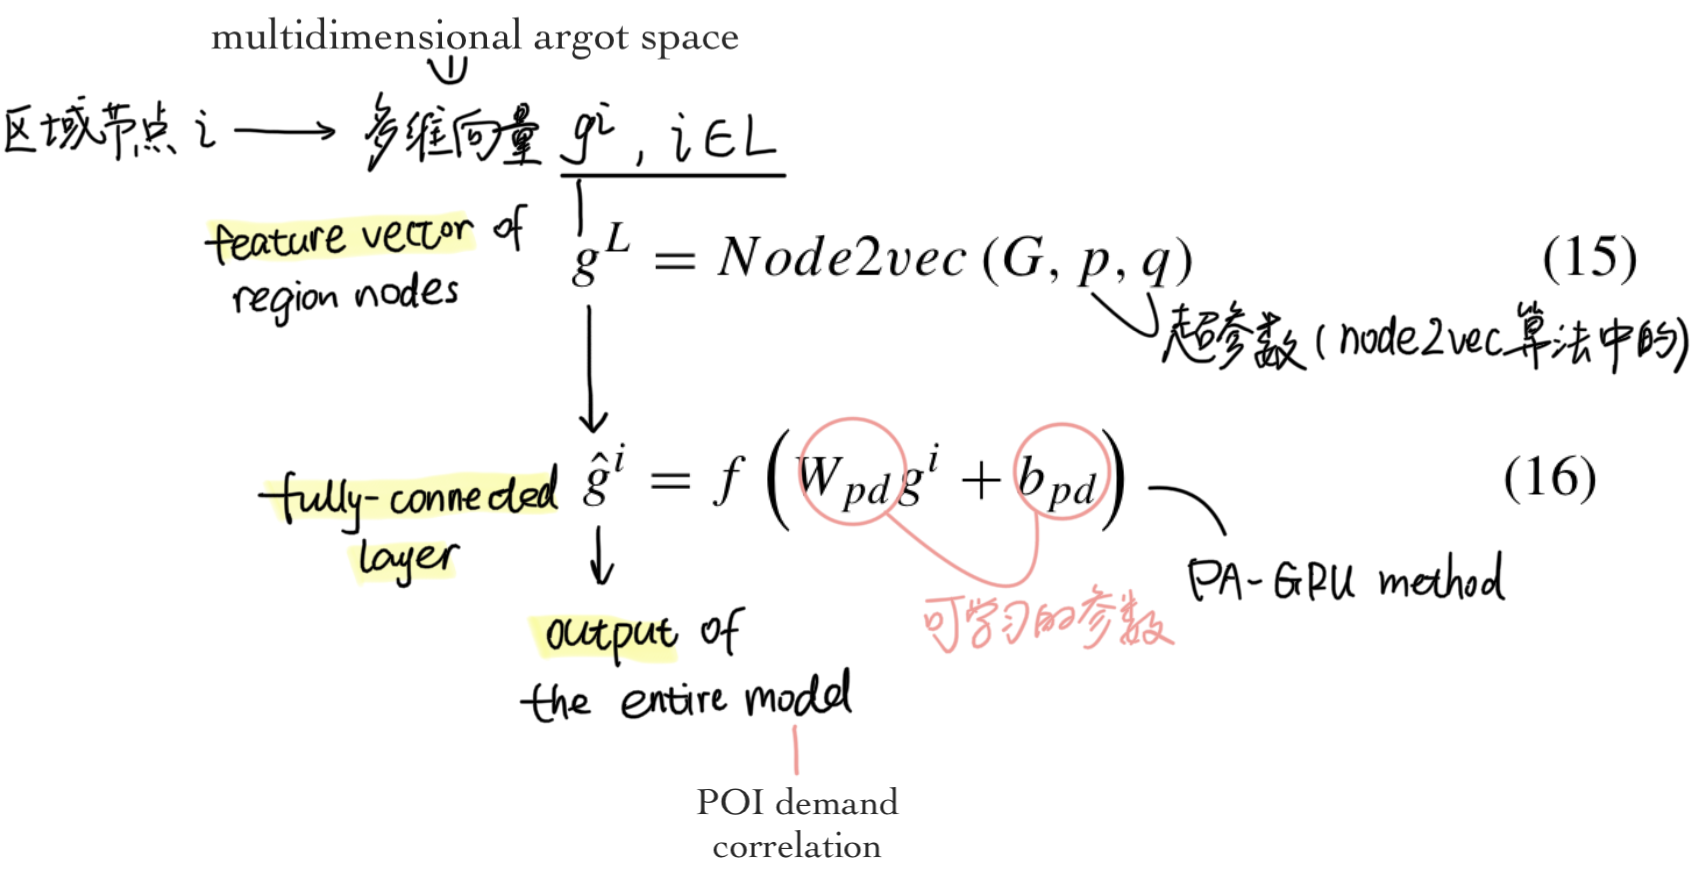 multidimensional argot space
区域节点 i → 多维向量 gⁱ, i∈L
feature vector of
region nodes
g^L = Node2vec (G, p, q) (15)
超参数(node2vec算法中的)
fully-connected
layer
ĝⁱ = f (W_pd gⁱ + b_pd) (16)
PA-GRU method
可学习的参数
output of
the entire model
POI demand
correlation